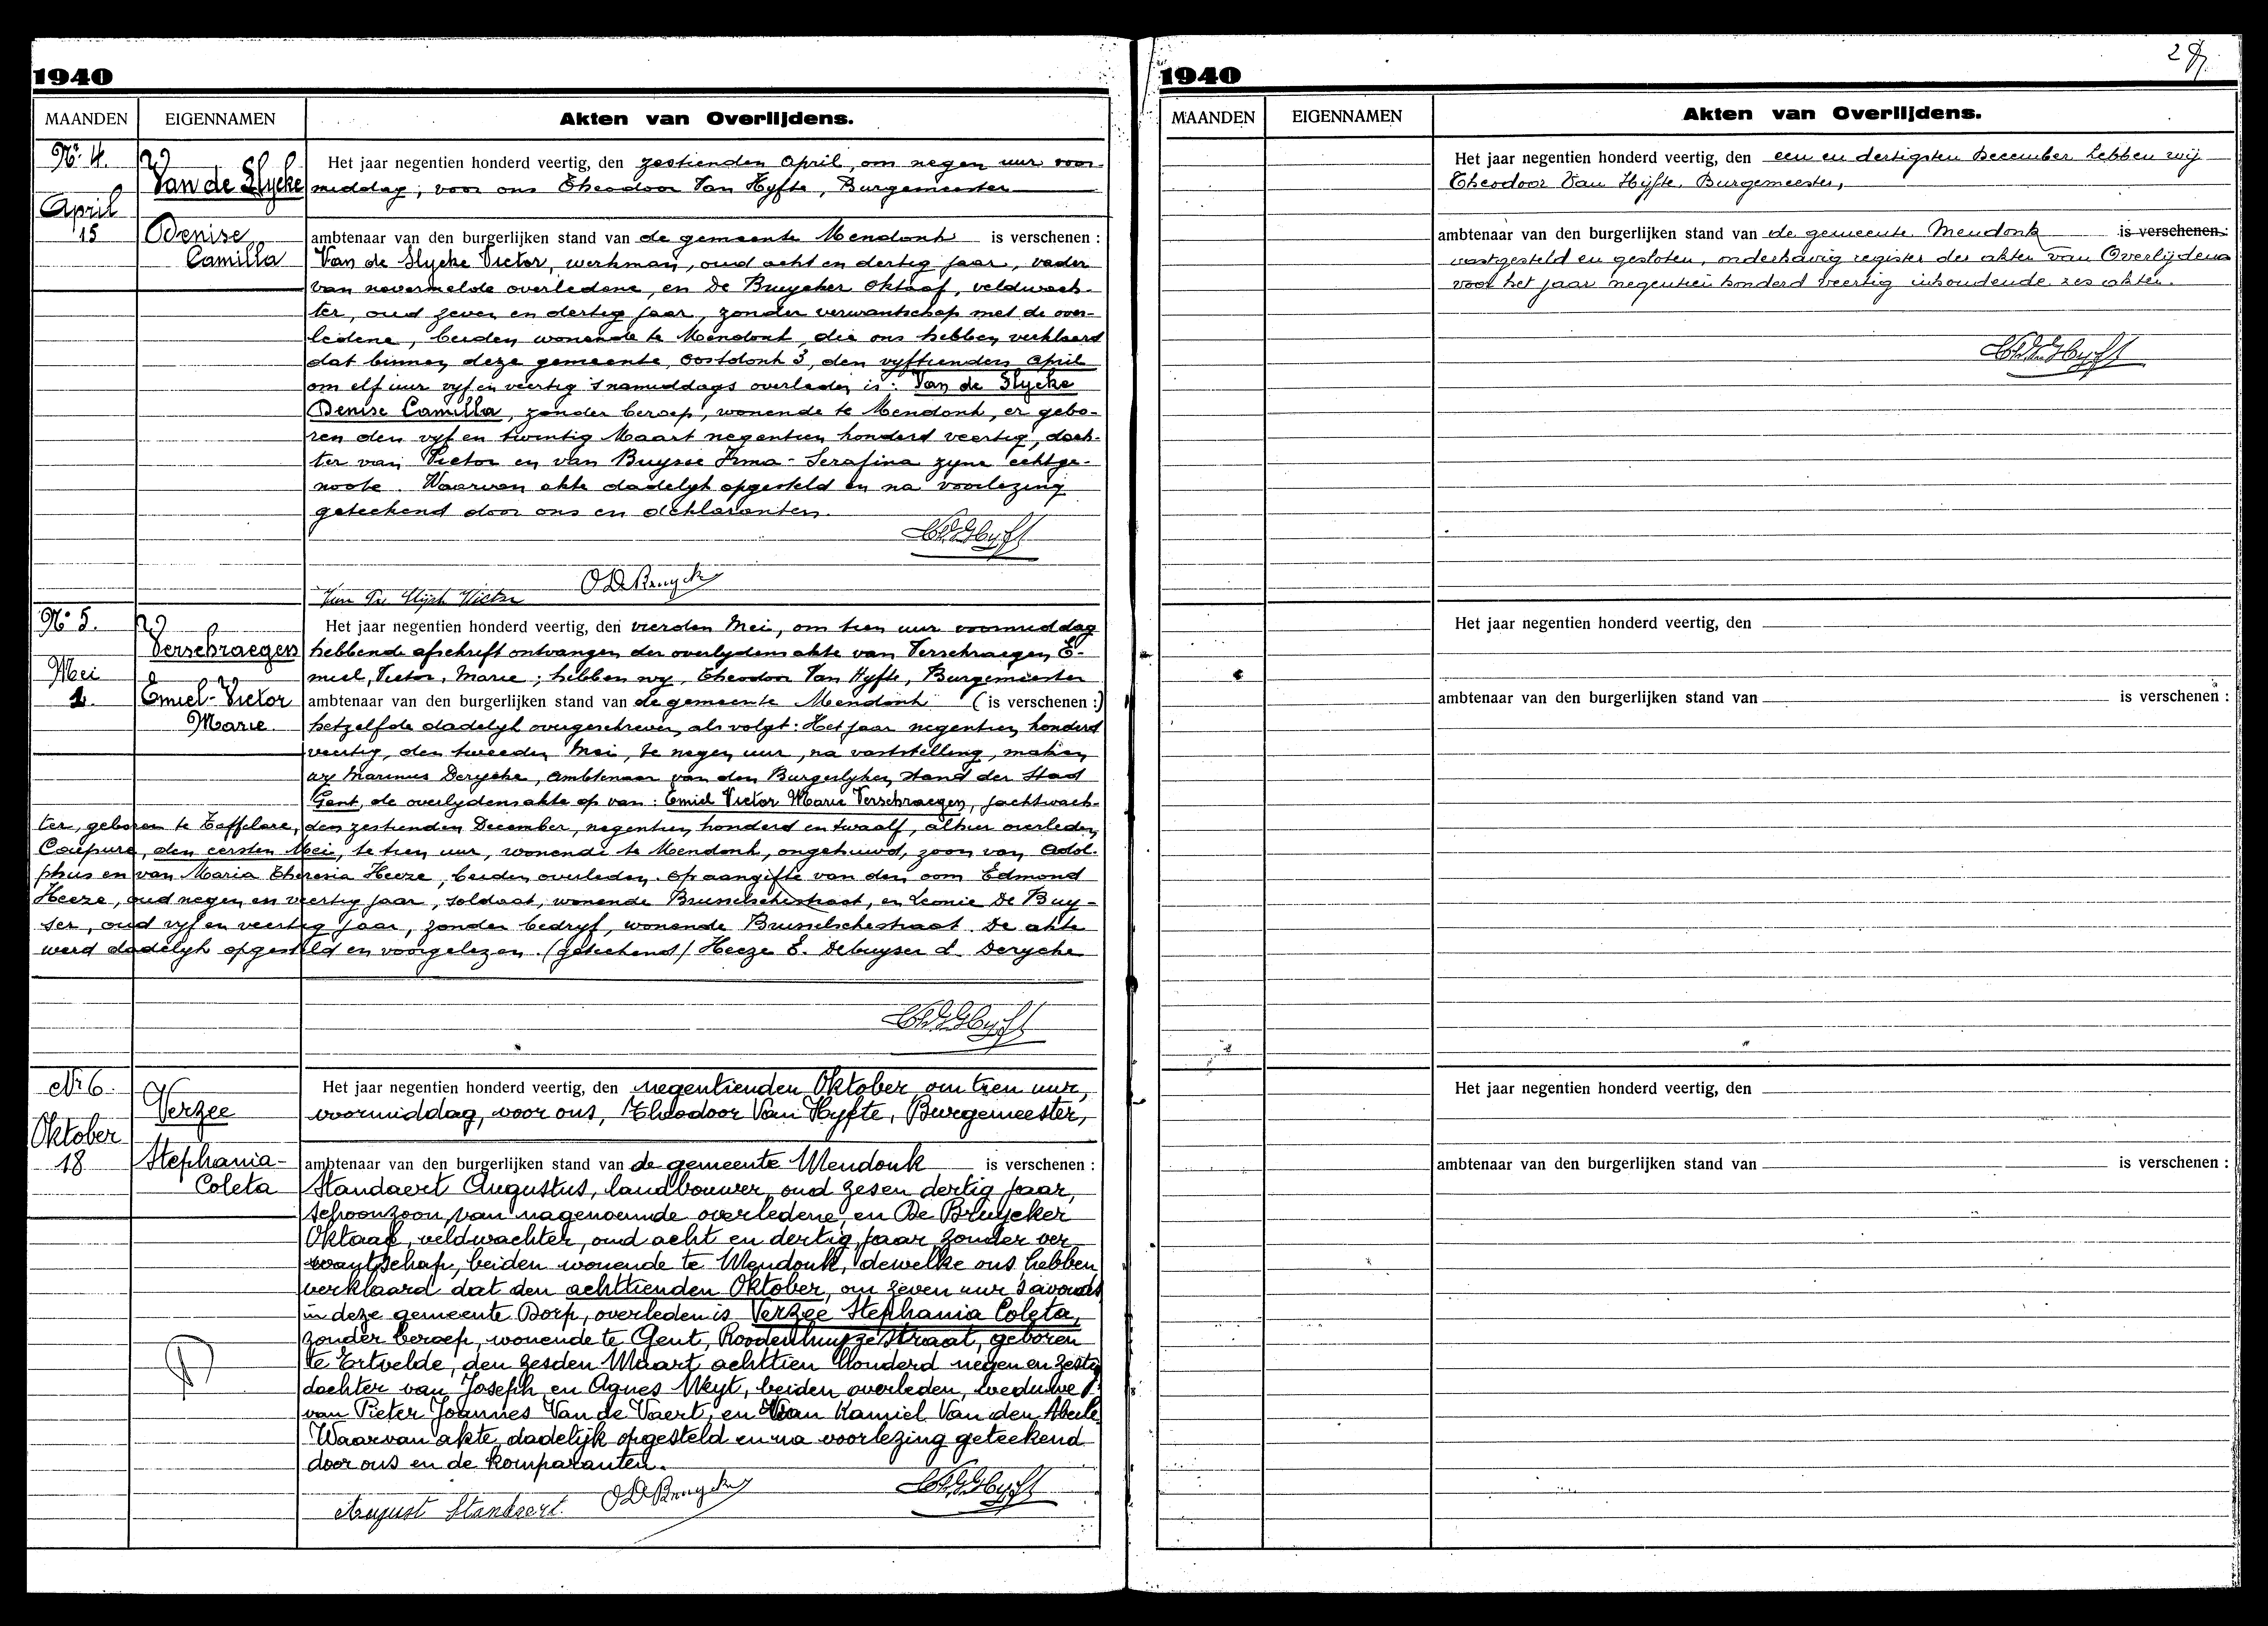 1940
MAANDEN
EIGENNAMEN
Akten van Overlijdens.
Nr. 4.
April
15
Van de Slycke
Denise
Camilla
Het jaar negentien honderd veertig, den zestienden April, om negen uur voor-
middag, voor ons Theodoor Van Hyfte, Burgemeester
ambtenaar van den burgerlijken stand van de gemeente Mendonk is verschenen :
Van de Slycke Victor, werkman, oud acht en dertig jaar, vader
van navermelde overledene, en De Bruycker Oktaaf, veldwach-
ter, oud zeven en dertig jaar, zonder verwantschap met de over-
ledene, beiden wonende te Mendonk, die ons hebben verklaard
dat binnen deze gemeente, Oostdonk 3, den vyftienden April
om elf uur vyf en veertig 's namiddags overleden is : Van de Slycke
Denise Camilla, zonder beroep, wonende te Mendonk, er gebo-
ren den vyf en twintig Maart negentien honderd veertig, doch-
ter van Victor en van Buysse Irma-Serafina zyne echtge-
noote. Waarvan akte dadelyk opgesteld en na voorlezing
geteekend door ons en deklaranten.
O De Bruycker
Nr 5.
Mei
1.
Verschraegen
Emiel-Victor
Marie.
Het jaar negentien honderd veertig, den vierden Mei, om tien uur voormiddag
hebbende afschrift ontvangen der overlydensakte van Verschraegen, E-
miel, Victor, Marie ; hebben wy, Theodoor Van Hyfte, Burgemeester
ambtenaar van den burgerlijken stand van de gemeente Mendonk (is verschenen :)
hetzelfde dadelyk overgeschreven, als volgt: Het jaar negentien honderd
veertig, den tweeden Mei, te negen uur, na vaststelling, maken
wy Marinus Derycke, Ambtenaar van den Burgerlyken stand der Stad
Gent, de overlydensakte op van : Emiel Victor Marie Verschraegen, jachtwach-
ter, geboren te Zaffelare, den zestienden December, negentien honderd en twaalf, alhier overleden,
Coupure, den eersten Mei, te tien uur, wonende te Mendonk, ongehuwd, zoon van Adol-
phus en van Maria Theresia Heeze, beiden overleden. Op aangifte van den oom Edmond
Heeze, oud negen en veertig jaar, soldaat, wonende Brusselschestraat, en Leonie De Buy-
ser, oud vyf en veertig jaar, zonder bedryf, wonende Brusselschestraat. De akte
werd dadelyk opgesteld en voorgelezen. (geteekend) Heeze E. Debuyser L. Derycke
Nr 6.
Oktober
18
Verzee
Stephania-
Coleta
Het jaar negentien honderd veertig, den negentienden Oktober om tien uur,
voormiddag, voor ons, Theodoor Van Hyfte, Burgemeester,
ambtenaar van den burgerlijken stand van de gemeente Mendonk is verschenen :
Standaert Augustus, landbouwer, oud zes en dertig jaar,
schoonzoon van nagenoemde overledene, en De Bruycker
Oktaaf, veldwachter, oud acht en dertig jaar zonder ver
wantschap, beiden wonende te Mendonk, dewelke ons hebben
verklaard dat den achttienden Oktober, om zeven uur 's avonds
in deze gemeente Dorp, overleden is Verzee Stephania Coleta,
zonder beroep, wonende te Gent, Roodenhuyzestraat, geboren
te Ertvelde, den zesden Maart achttien honderd negen en zestig
dochter van Joseph en Agnes Weyt, beiden overleden, weduwe
van Pieter Joannes Van de Vaert, en van Kamiel Van den Abeele
Waarvan akte, dadelijk opgesteld en na voorlezing geteekend
door ons en de komparanten.
August Standaert. O De Bruycker
1940
MAANDEN
EIGENNAMEN
Akten van Overlijdens.
Het jaar negentien honderd veertig, den een en dertigsten December hebben wij
Theodoor Van Hijfte, Burgemeester,
ambtenaar van den burgerlijken stand van de gemeente Mendonk is verschenen :
vastgesteld en gesloten, onderhavig register der akten van Overlijdens
voor het jaar negentien honderd veertig inhoudende zes akten.
Het jaar negentien honderd veertig, den
ambtenaar van den burgerlijken stand van is verschenen :
Het jaar negentien honderd veertig, den
ambtenaar van den burgerlijken stand van is verschenen :